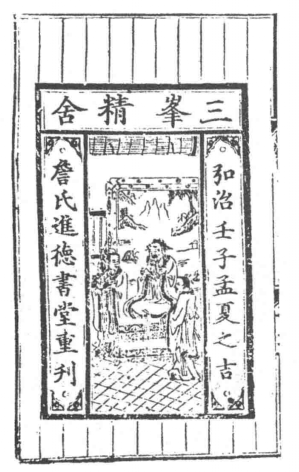 三峯精舍
弘治壬子孟夏之吉
詹氏進德書堂重刋